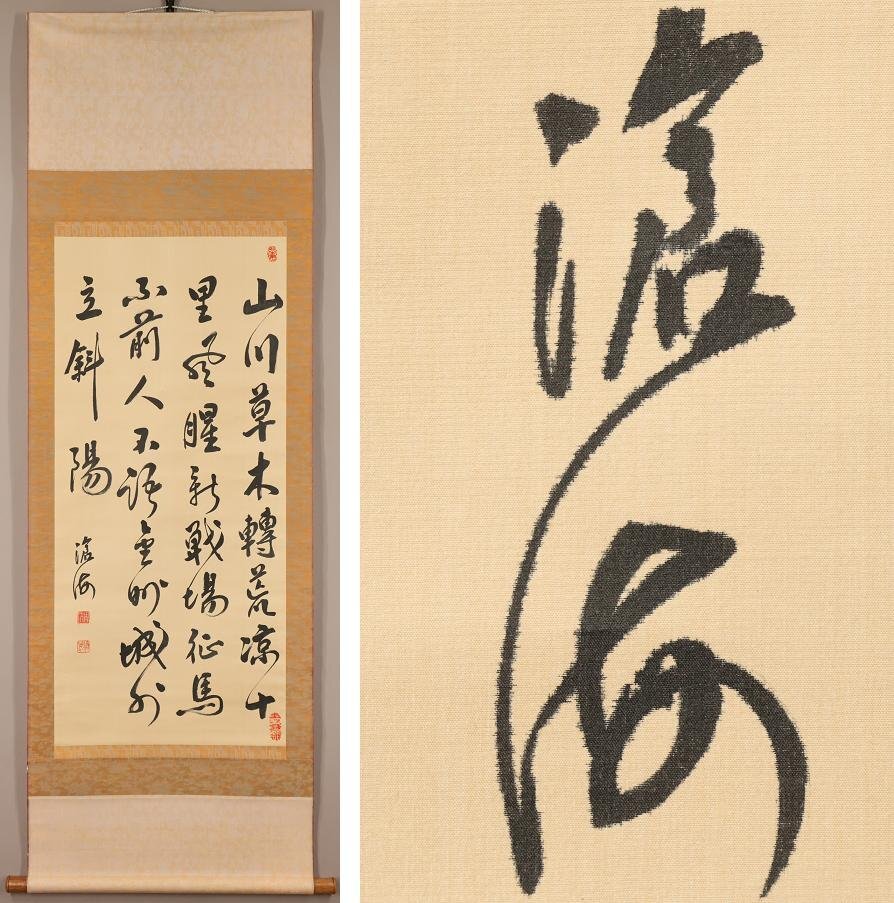 山川草木轉荒涼十
里風腥新戰場征馬
不前人不語金州城外
立斜陽
滄海
滄海